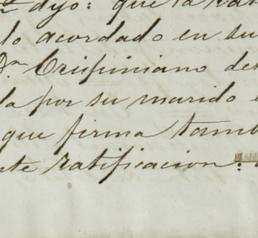 dijo: que la rat
lo acordado en su
Dn Crispiniano del
la por su marido
que firma tamb
nte ratificacion: